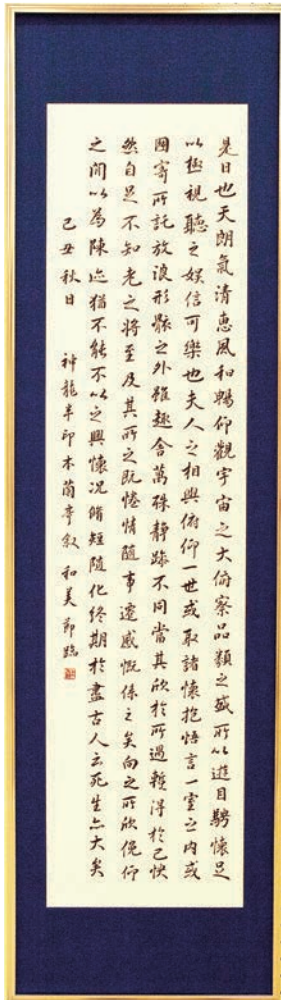 是日也天朗氣清惠風和暢仰觀宇宙之大俯察品類之盛所以遊目騁懷足
以極視聽之娛信可樂也夫人之相與俯仰一世或取諸懷抱悟言一室之内或
因寄所託放浪形骸之外雖趣舍萬殊靜躁不同當其欣於所遇暫得於己怏
然自足不知老之將至及其所之既惓情隨事遷感慨係之矣向之所欣俛仰
之間以為陳迹猶不能不以之興懷況脩短隨化終期於盡古人云死生亦大矣
己丑秋日 神龍半印本蘭亭叙 和美節臨